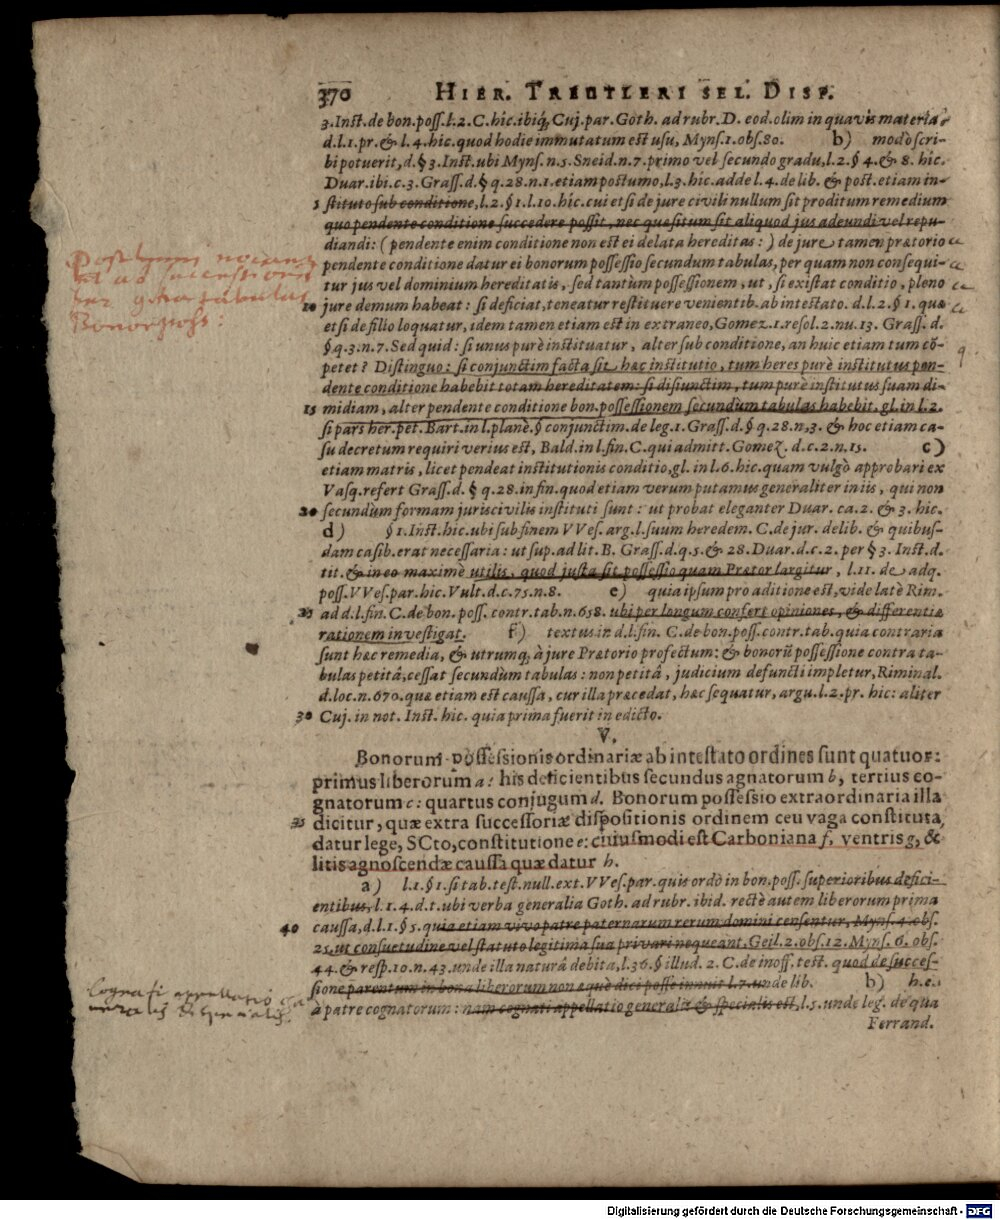 370 HIER. TREUTLERI SEL. DISP.
3. Inst. de bon. poss. l. 2. C. hic. ibiq; Cuj. par. Goth. ad rubr. D. eod. olim in quavis materia
d. l. 1. pr. & l. 4. hic. quod hodie immutatum est usu, Myns. 1. obs. 80. b) modò scri-
bi potuerit, d. § 3. Inst. ubi Myns. n. 5. Sneid. n. 7. primo vel secundo gradu, l. 2. § 4. & 8. hic.
Duar. ibi. c. 3. Grass. d. § q. 28. n. 1. etiam postumo, l. 3. hic. adde l. 4. de lib. & post. etiam in-
5 stituto sub conditione, l. 2. § 1. l. 10. hic. cui etsi de jure civili nullum sit proditum remedium
quo pendente conditione succedere possit, nec quæsitum sit aliquod jus adeundi vel repu-
diandi: (pendente enim conditione non est ei delata hereditas:) de jure tamen prætorio
pendente conditione datur ei bonorum possessio secundum tabulas, per quam non consequi-
tur jus vel dominium hereditatis, sed tantùm possessionem, ut, si existat conditio, pleno
10 jure demum habeat: si deficiat, teneatur restituere venientib. ab intestato. d. l. 2. § 1. quæ
etsi de filio loquatur, idem tamen etiam est in extraneo, Gomez. 1. resol. 2. nu. 13. Grass. d.
§ q. 3. n. 7. Sed quid: si unus purè instituatur, alter sub conditione, an huic etiam tum cõ-
petet? Distinguo: si conjunctim facta sit hæc institutio, tum heres purè institutus pen-
dente conditione habebit totam hereditatem: si disiunctim, tum purè institutus suam di-
15 midiam, alter pendente conditione bon. possessionem secundùm tabulas habebit. gl. in l. 2.
si pars her. pet. Bart. in l. planè. § conjunctim. de leg. 1. Grass. d. § q. 28. n, 3. & hoc etiam ca-
su decretum requiri verius est, Bald. in l. fin. C. qui admitt. Gomez. d. c. 2. n. 15. c)
etiam matris, licet pendeat institutionis conditio, gl. in l. 6. hic. quam vulgò approbari ex
Vasq. refert Grass. d. § q. 28. in fin. quod etiam verum putamus generaliter in iis, qui non
20 secundùm formam juris civilis instituti sunt: ut probat eleganter Duar. ca. 2. & 3. hic.
d) § 1. Inst. hic. ubi sub finem VVes. arg. l. suum heredem. C. de jur. delib. & quibus-
dam casib. erat necessaria: ut sup. ad lit. B. Grass. d. q. 5. & 28. Duar. d. c. 2. per § 3. Inst. d.
tit. & in eo maximè utilis, quod justa sit possessio quam Prætor largitur, l. 11. de adq.
poss. VVes. par. hic. Vult. d. c. 75. n. 8. e) quia ipsum pro aditione est, vide latè Rim.
25 ad d. l. fin. C. de bon. poss. contr. tab. n. 658. ubi per longum confert opiniones, & differentiæ
rationem investigat. f) textus in d. l. fin. C. de bon. poss. contr. tab. quia contraria
sunt hæc remedia, & utrumq; à jure Prætorio profectum: & bonorũ possessione contra ta-
bulas petitâ, cessat secundùm tabulas: non petitâ, judicium defuncti impletur, Riminal.
d. loc. n. 670. quæ etiam est caussa, cur illa præcedat, hæc sequatur, argu. l. 2. pr. hic: aliter
30 Cuj. in not. Inst. hic. quia prima fuerit in edicto.
V.
Bonorum possessionis ordinariæ ab intestato ordines sunt quatuor:
primus liberorum a: his deficientibus secundus agnatorum b, tertius co-
gnatorum c: quartus conjugum d. Bonorum possessio extraordinaria illa
35 dicitur, quæ extra successoriæ dispositionis ordinem ceu vaga constituta,
datur lege, SCto, constitutione e: cuiusmodi est Carboniana f, ventris g, &
litis agnoscendæ caussa quæ datur h.
a) l. 1. § 1. si tab. test. null. ext. VVes. par. quis ordò in bon. poss. superioribus defici-
entibus, l. 1. 4. d. t. ubi verba generalia Goth. ad rubr. ibid. rectè autem liberorum prima
40 caussa, d. l. 1. § 5. quia etiam vivo patre paternarum rerum domini censentur, Myns. 4. obs.
25. ut consuetudine vel statuto legitima sua privari nequeant, Geil. 2. obs. 12. Myns. 6. obs.
44. & resp. 10. n. 43. unde illa naturâ debita, l. 36. § illud. 2. C. de inoff. test. quod de succes-
sione parentum in bona liberorum non æquè dici posse innuit l. 7. unde lib. b) h. e.
à patre cognatorum: nam cognati appellatio generalis & specialis est, l. 5. unde leg. de qua
Ferrand.
Cognati appellatio
Digitalisierung gefördert durch die Deutsche Forschungsgemeinschaft - DFG